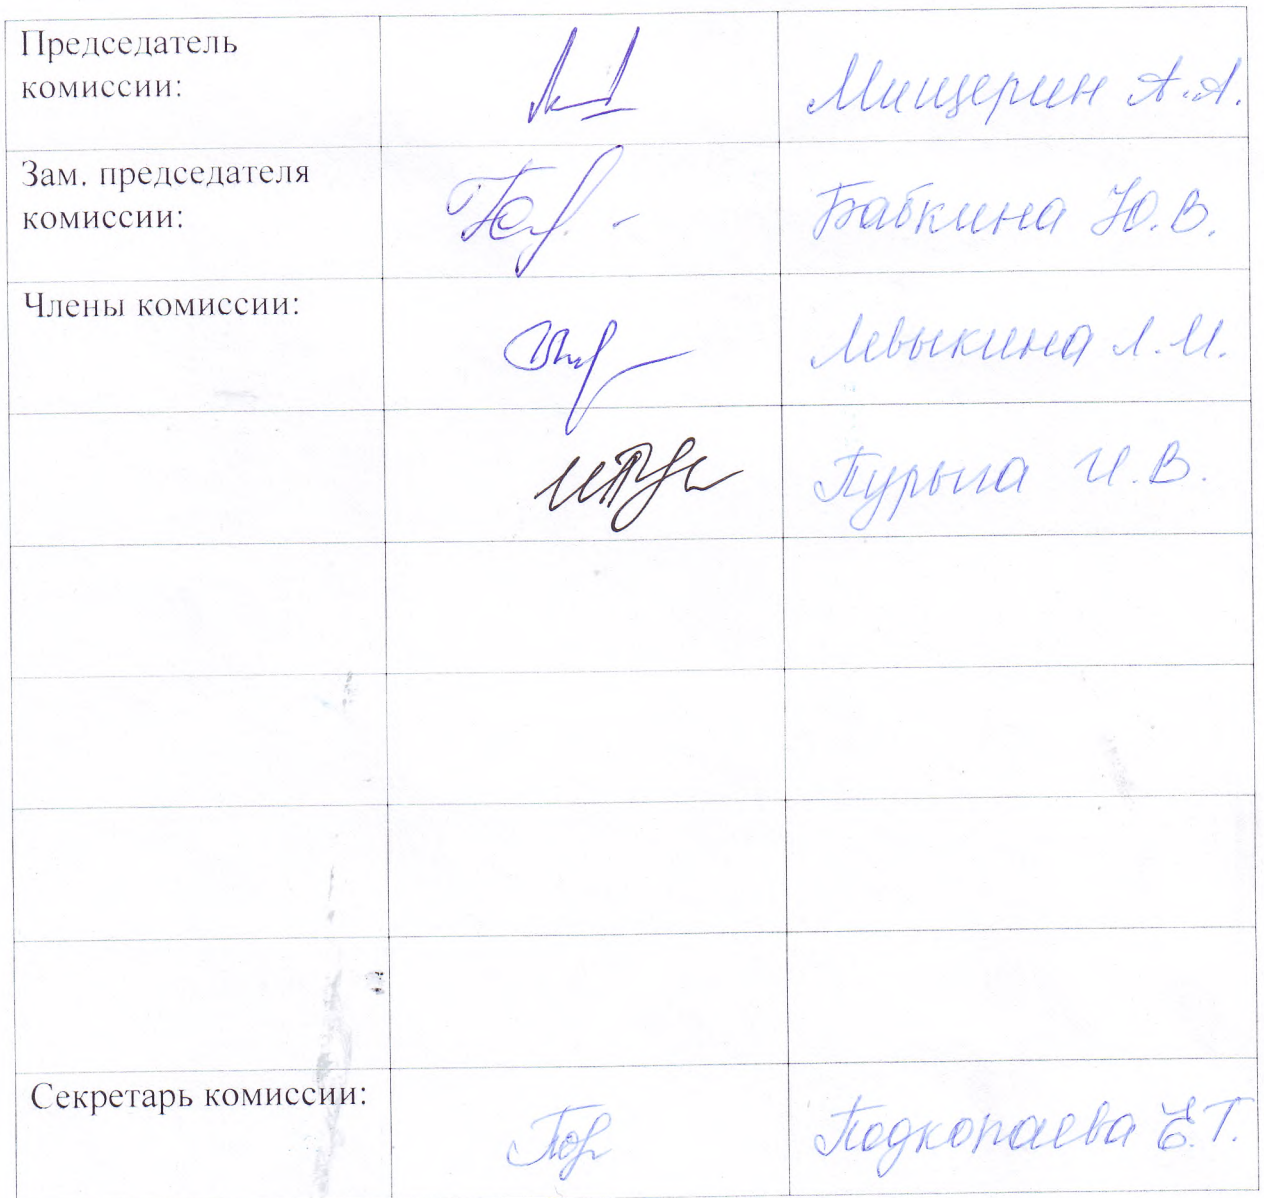 Председатель
комиссии:
Мищерин А.А.
Зам. председателя
комиссии:
Бабкина Ю.В.
Члены комиссии:
Левыкина Л.И.
Пурыга И.В.
Секретарь комиссии:
Подкопаева Е.Т.